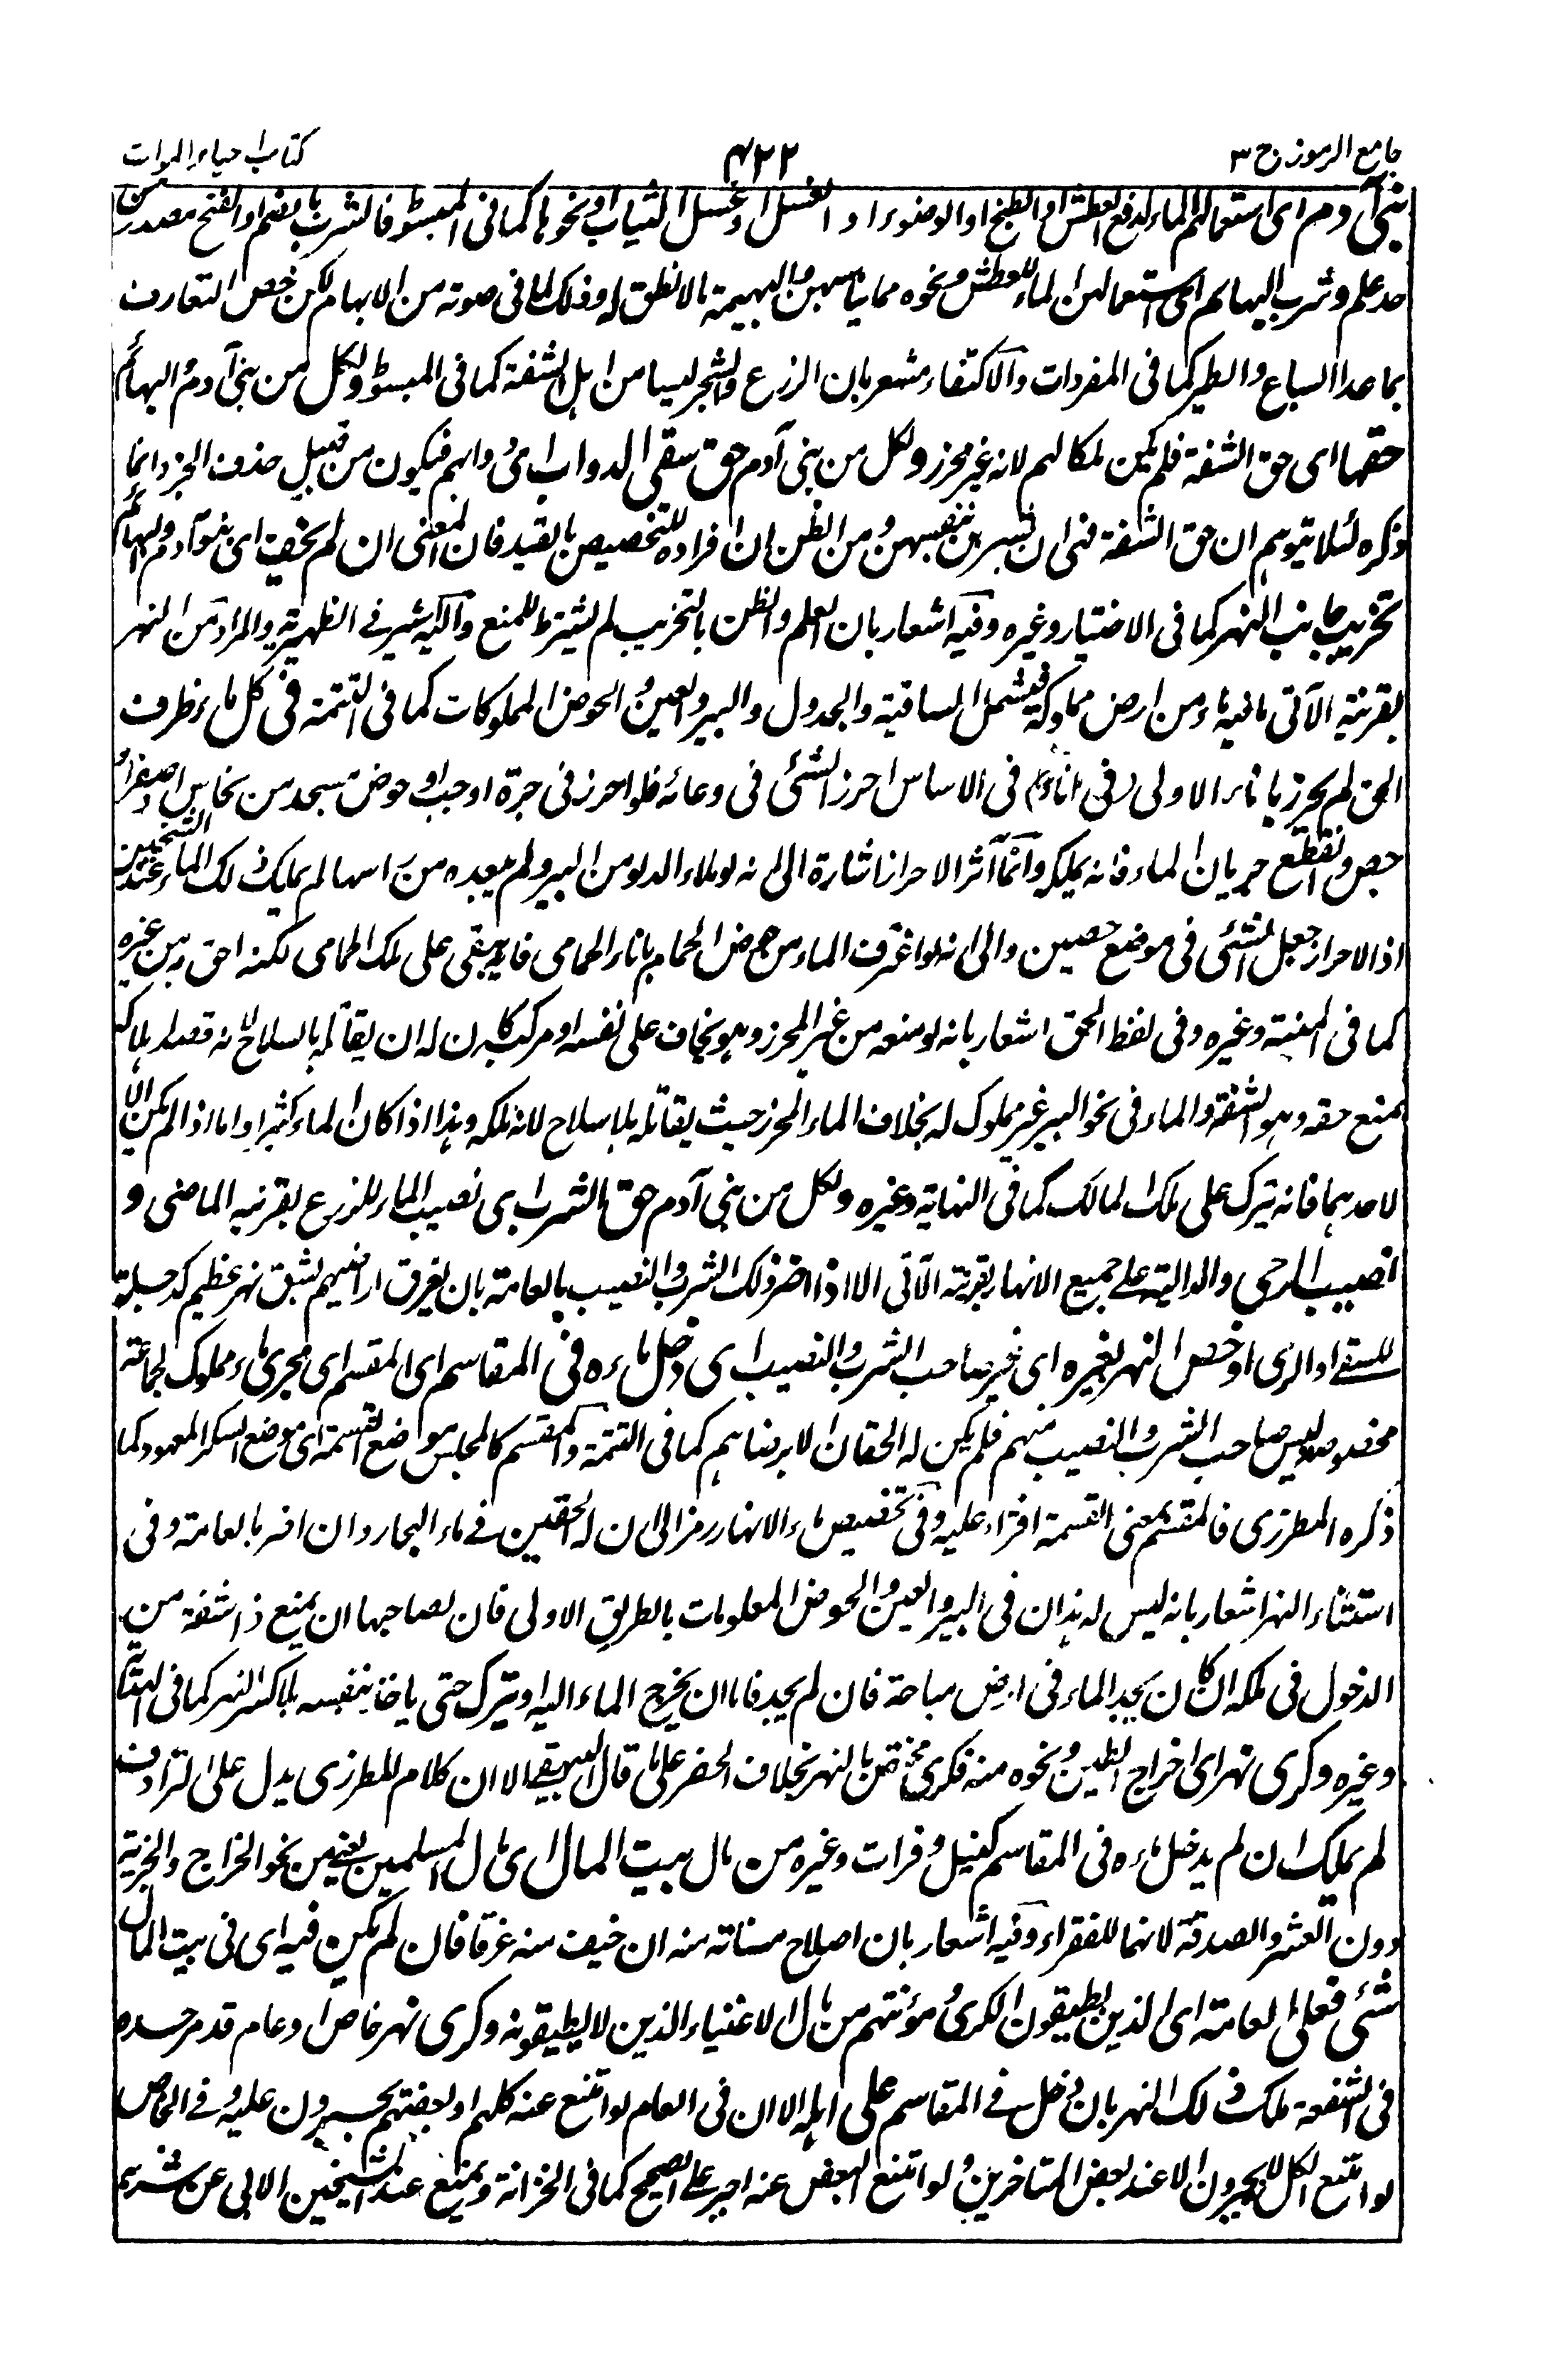 جامع الرموز ج ٣
٤٢٢
كتاب احياء الموات
بنى آدم اى استعمالهم الماء لدفع العطش او الطبخ او الوضوء او الغسل او غسل الثياب او نحوها كما فى المبسوط فالشرب بالضم او الفتح مصدر من
حد علم وشرب البهائم اى استعمالهن الماء للعطش ونحوه مما يناسبهن والبهيمة ما لا نطق له وذلك لما فى صوته من الابهام لكن خص التعارف
بما عدا السباع والطير كما فى المفردات والاكتفاء مشعر بان الزرع والشجر ليسا من اهل الشفة كما فى المبسوط ولكل من بنى آدم والبهائم
حقها اى حق الشفة فلم يكن ملكا لهم لانه غير محرز ولكل من بنى آدم حق سقى الدواب اى دوابهم فيكون من قبيل حذف الجزء وانما
ذكره لئلا يتوهم ان حق الشفة فى ان يشربن بنفسهن ومن الظن ان افراده للتخصيص بالقيد فان المعنى ان لم يخف اى بنو آدم والبهائم
تخريب جانب النهر كما فى الاختيار وغيره وفيه اشعار بان العلم والظن بالتخريب لم يشترط للمنع واليه يشير فى الظهيرية والمراد من النهر
بقرينة الآتى ما فيه ماء من ارض مملوكة فيشمل الساقية والجدول والبير والعين والحوض المملوكات كما فى التتمة فى كل ماء ظرف
الحق لم يحرز باناء الاولى (فى اناء) فى الاساس احرز الشئ فى وعائه فلو احرز فى جرة او جب او حوض مسجد من نحاس او صفر او
جص وانقطع جريان الماء فانه يملكه وانما آثر الاحراز اشارة الى انه لو ملاء الدلو من البير ولم يبعده من راسها لم يملك ذلك الماء عند الشيخين
اذ الاحراز جعل الشئ فى موضع حصين والى انه لو اغترف الماء من حوض الحمام باناء الحمامى فانه يبقى على ملك الحمامى لكنه احق به من غيره
كما فى المنية وغيره وفى لفظ الحق اشعار بانه لو منعه من غير المحرز وهو يخاف على نفسه او مركبه كان له ان يقاتله بالسلاح لانه قصد اهلاكه
بمنع حقه وهو الشفة والماء فى نحو البير غير مملوك له بخلاف الماء المحرز حيث يقاتله بلا سلاح لانه ملكه وهذا اذا كان الماء كثيرا واما اذا لم يكن الا
لاحدهما فانه يترك على ملك المالك كما فى النهاية وغيره ولكل من بنى آدم حق الشرب اى نصيب الماء للزرع بقرينة الماضى و
نصيب الرحى والدالية على جميع الانهار بقرينة الآتى الا اذا اضر ذلك الشرب والنصيب بالعامة بان يغرق اراضيهم بشق نهر عظيم كدجلة
للسقى او الرحى او خص النهر بغيره اى غير صاحب الشرب والنصيب اى دخل ماءه فى المقاسم اى المقسم اى مجرى ماء مملوك لجماعة
مخصوصة ليس صاحب الشرب والنصيب منهم فلم يكن له الحقان الا برضاهم كما فى التتمة والمقسم كالمجلس موضع القسمة اى موضع السكر المعهود كما
ذكره المطرزى فالمقسم بمعنى القسمة افتراء عليه وفى تخصيص ماء الانهار رمز الى ان له الحقين فى ماء البحار وان اضر بالعامة وفى
استثناء النهر اشعار بانه ليس له هذان فى البير والعين والحوض المعلومات بالطريق الاولى فان لصاحبها ان يمنع ذا شفة من
الدخول فى ملكه ان كان يجد الماء فى ارض مباحة فان لم يجد فاما ان يخرج الماء اليه او يترك حتى ياخذ بنفسه بلا كسر النهر كما فى
وغيره وكرى نهر اى اخراج الطين ونحوه منه فكرى مختص بالنهر بخلاف الحفر على ما قال البيهقى الا ان كلام المطرزى يدل على الترادف
لم يملك ان لم يدخل ماءه فى المقاسم كنيل وفرات وغيره من مال بيت المال اى مال المسلمين يعنى من نحو الخراج والجزية
دون العشر والصدقة لانهما للفقراء وفيه اشعار بان اصلاح مسناته منه ان خيف منه غرقا فان لم يكن فيه اى فى بيت المال
شئ فعلى العامة اى الذين يطيقون الكرى ومؤنتهم من مال الاغنياء الذين لا يطيقونه وكرى نهر خاص او عام قد مر حده
فى الشفعة ملك ذلك النهر بان دخل فى المقاسم على اهله الا ان فى العام لو امتنع عنه كلهم او بعضهم يجبرون عليه وفى الخاص
لو امتنع الكل لا يجبرون الا عند بعض المتاخرين ولو امتنع البعض عنه اجبر على الصحيح كما فى الخزانة ويمنع عند الشيخين الابى عن شربه